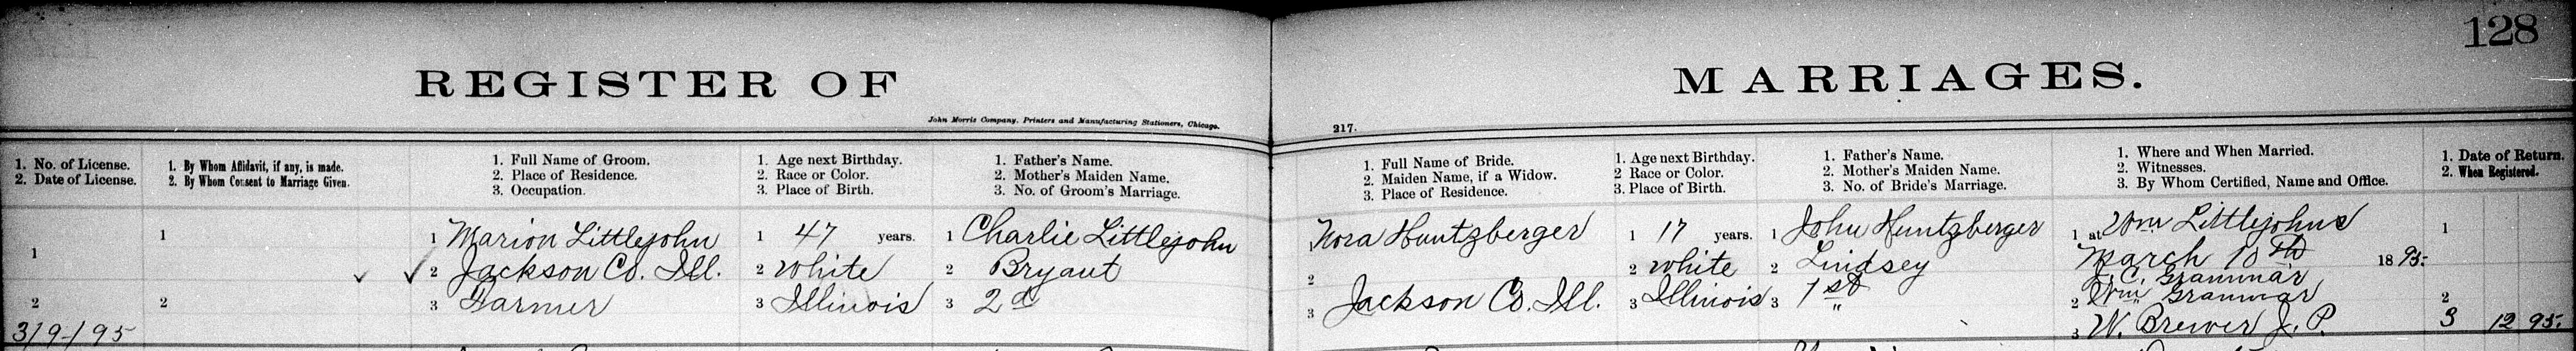 128
REGISTER OF MARRIAGES.
John Morris Company, Printers and Manufacturing Stationers, Chicago.
217.
1. No. of License.
2. Date of License.
1. By Whom Affidavit, if any, is made.
2. By Whom Consent to Marriage Given.
1. Full Name of Groom.
2. Place of Residence.
3. Occupation.
1. Age next Birthday.
2. Race or Color.
3. Place of Birth.
1. Father's Name.
2. Mother's Maiden Name.
3. No. of Groom's Marriage.
1. Full Name of Bride.
2. Maiden Name, if a Widow.
3. Place of Residence.
1. Age next Birthday.
2 Race or Color.
3. Place of Birth.
1. Father's Name.
2. Mother's Maiden Name.
3. No. of Bride's Marriage.
1. Where and When Married.
2. Witnesses.
3. By Whom Certified, Name and Office.
1. Date of Return.
2. When Registered.
1
2
3/9-/95
1
2
1 Marion Littlejohn
2 Jackson Co. Ill.
3 Farmer
1 47 years.
2 White
3 Illinois
1 Charlie Littlejohn
2 Bryant
3 2d
1 Nora Huntzberger
2
3 Jackson Co. Ill.
1 17 years.
2 White
3 Illinois
1 John Huntzberger
2 Lindsey
3 1st "
1 at Wm Littlejohns
March 10th 1895-
J. C. Grammar
2 Wm Grammar
3 W. Brewer J. P.
1
2
3 12 95.